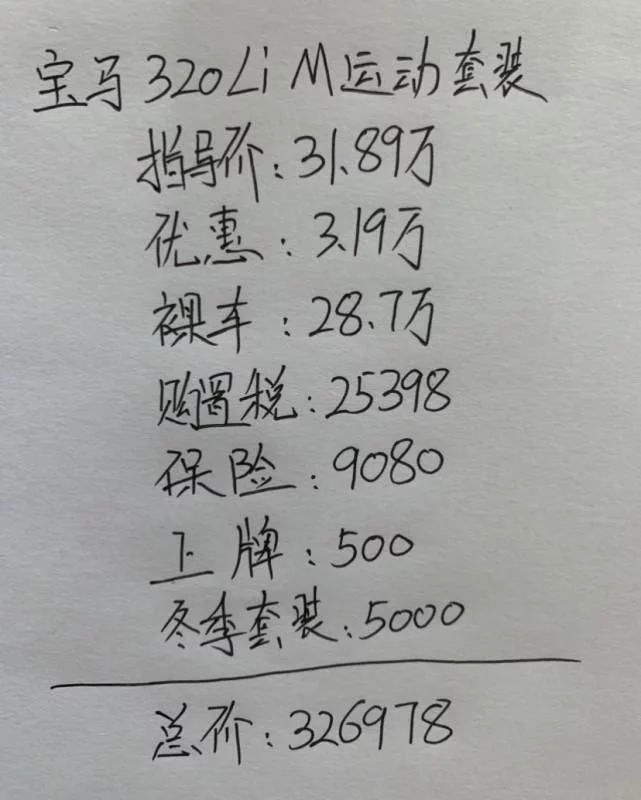 宝马320Li M运动套装
指导价:31.89万
优惠:3.19万
裸车:28.7万
购置税:25398
保险:9080
上牌:500
冬季套装:5000
总价:326978